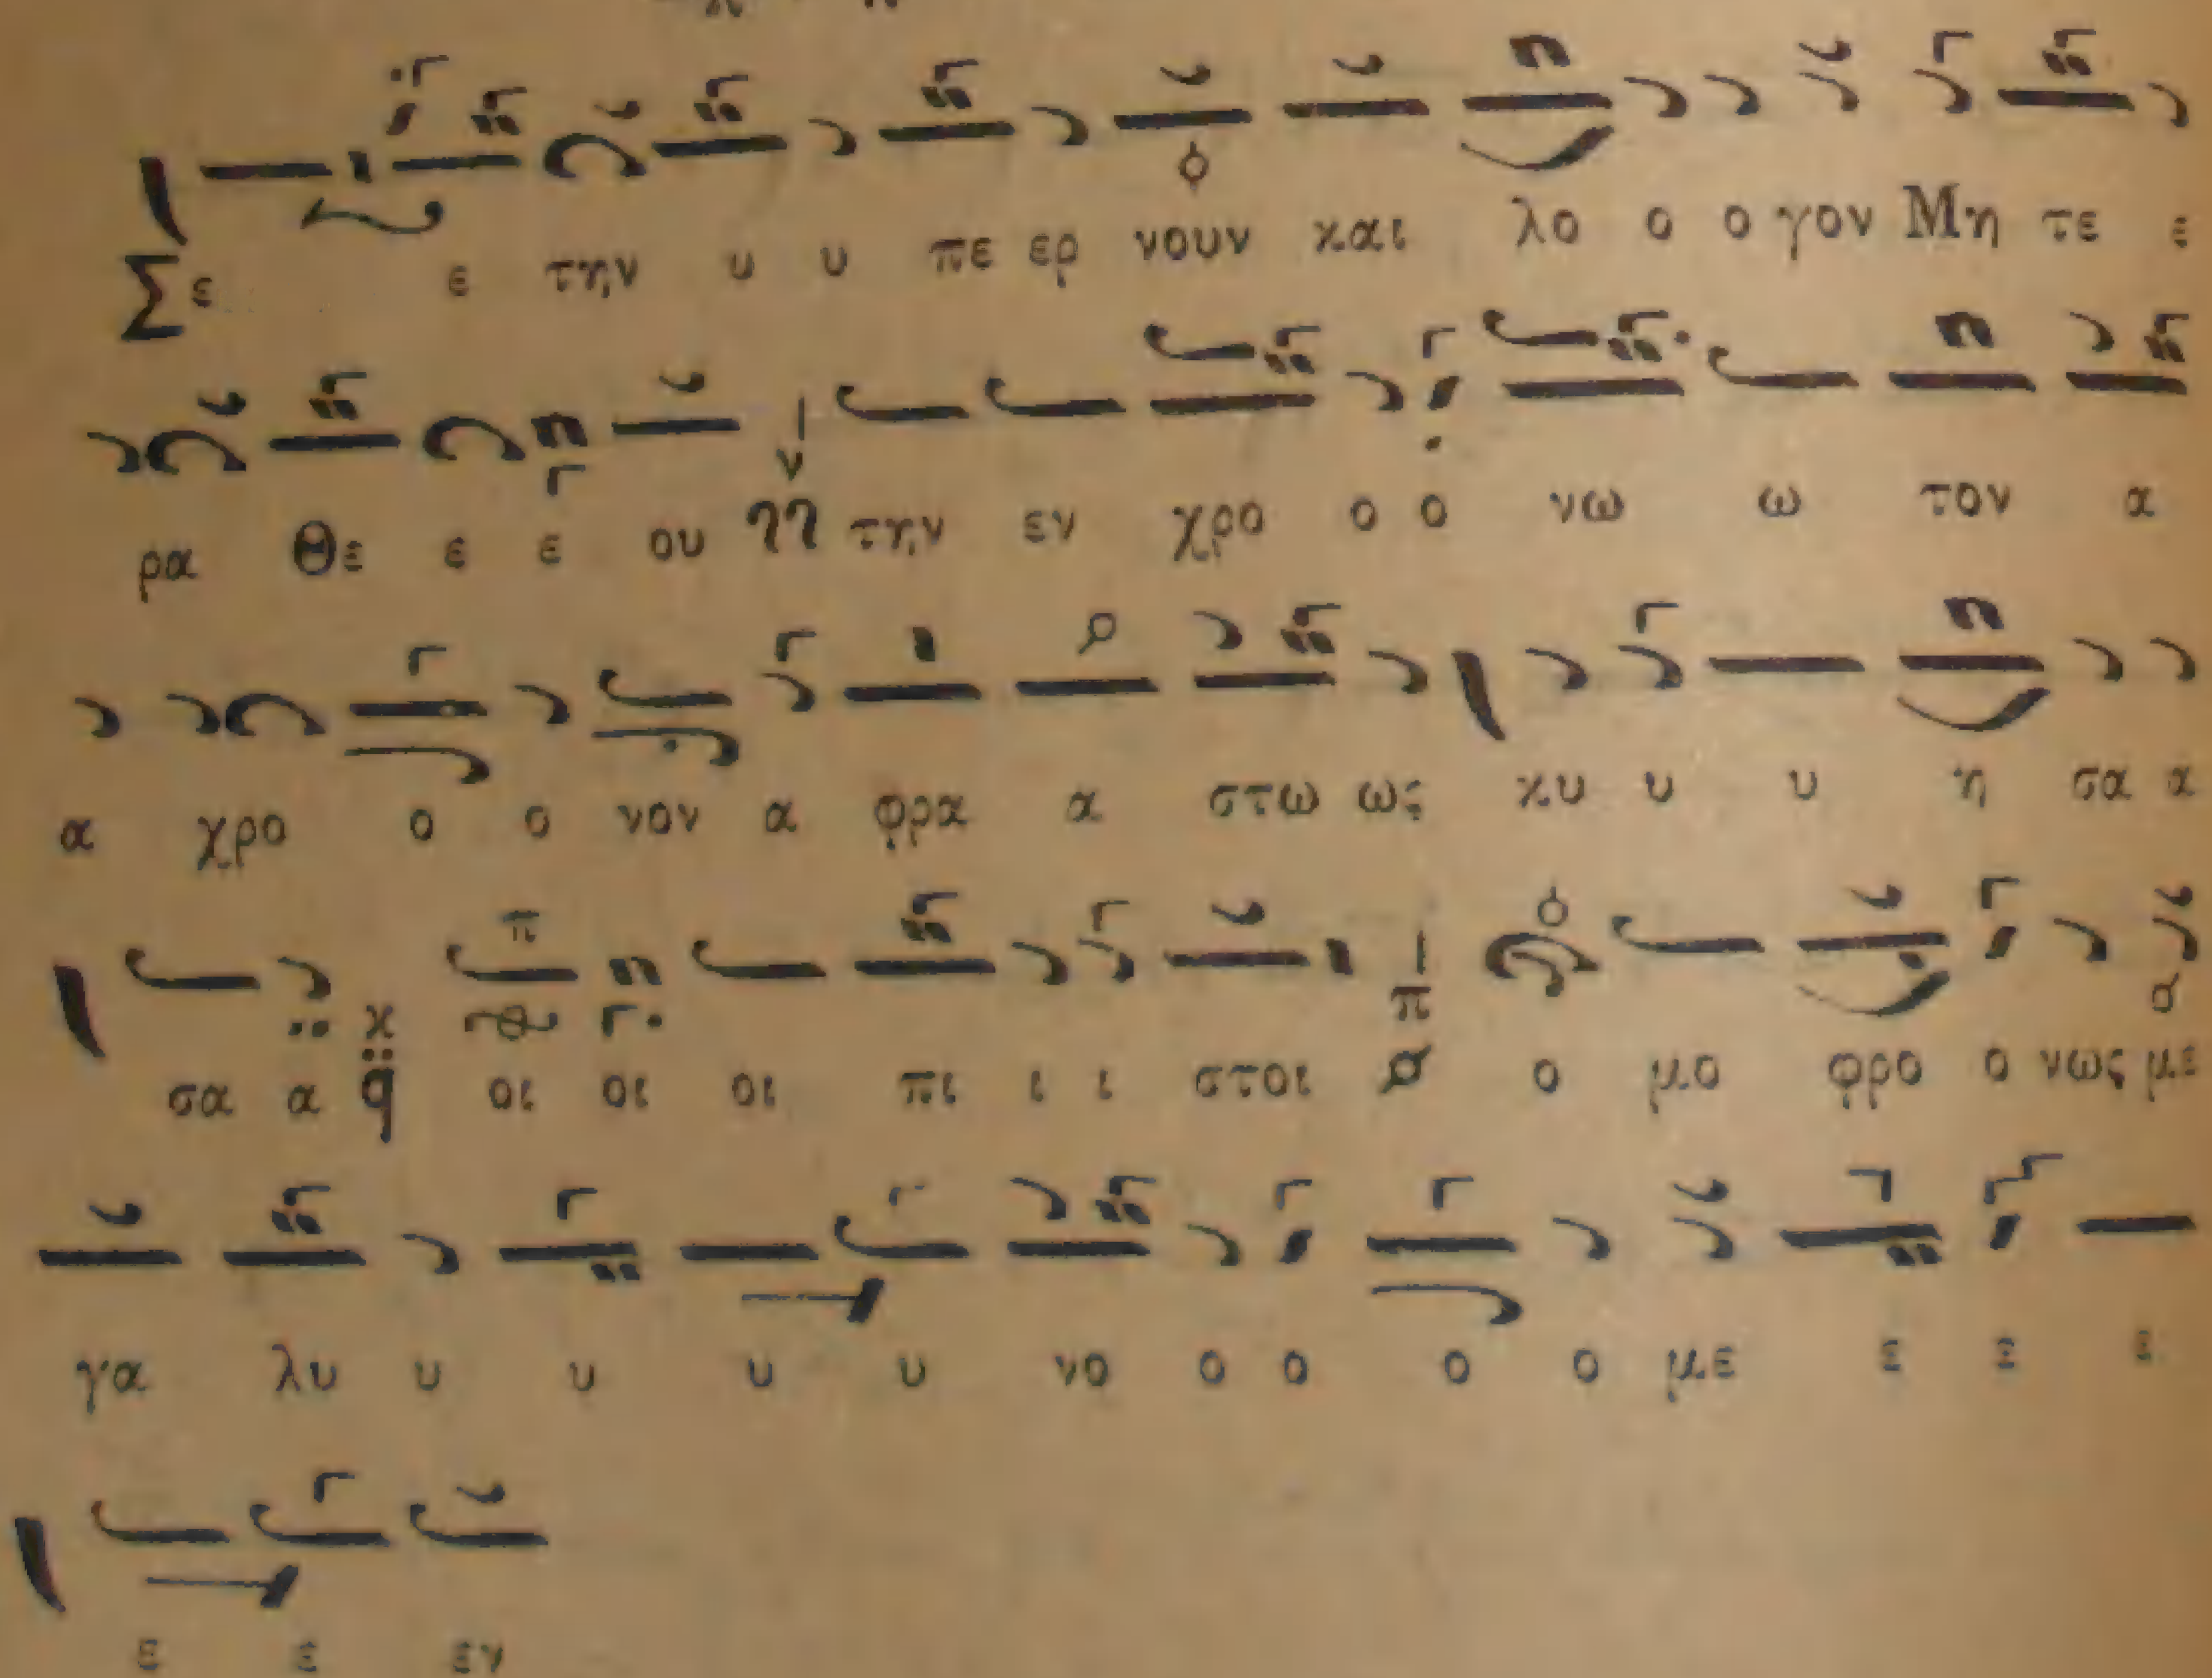 Σε ε την υ υ πε ερ νουν και λο ο ο γον Μη τε ε
ρα Θε ε ε ου την εν χρο ο ο νω ω τον α
α χρο ο ο νον α φρα α στω ως κυ υ υ η σα α
σα α οι οι οι πι ι ι στοι ο μο φρο ο νως με
γα λυ υ υ υ υ νο ο ο ο ο με ε ε ε
ε ε εν